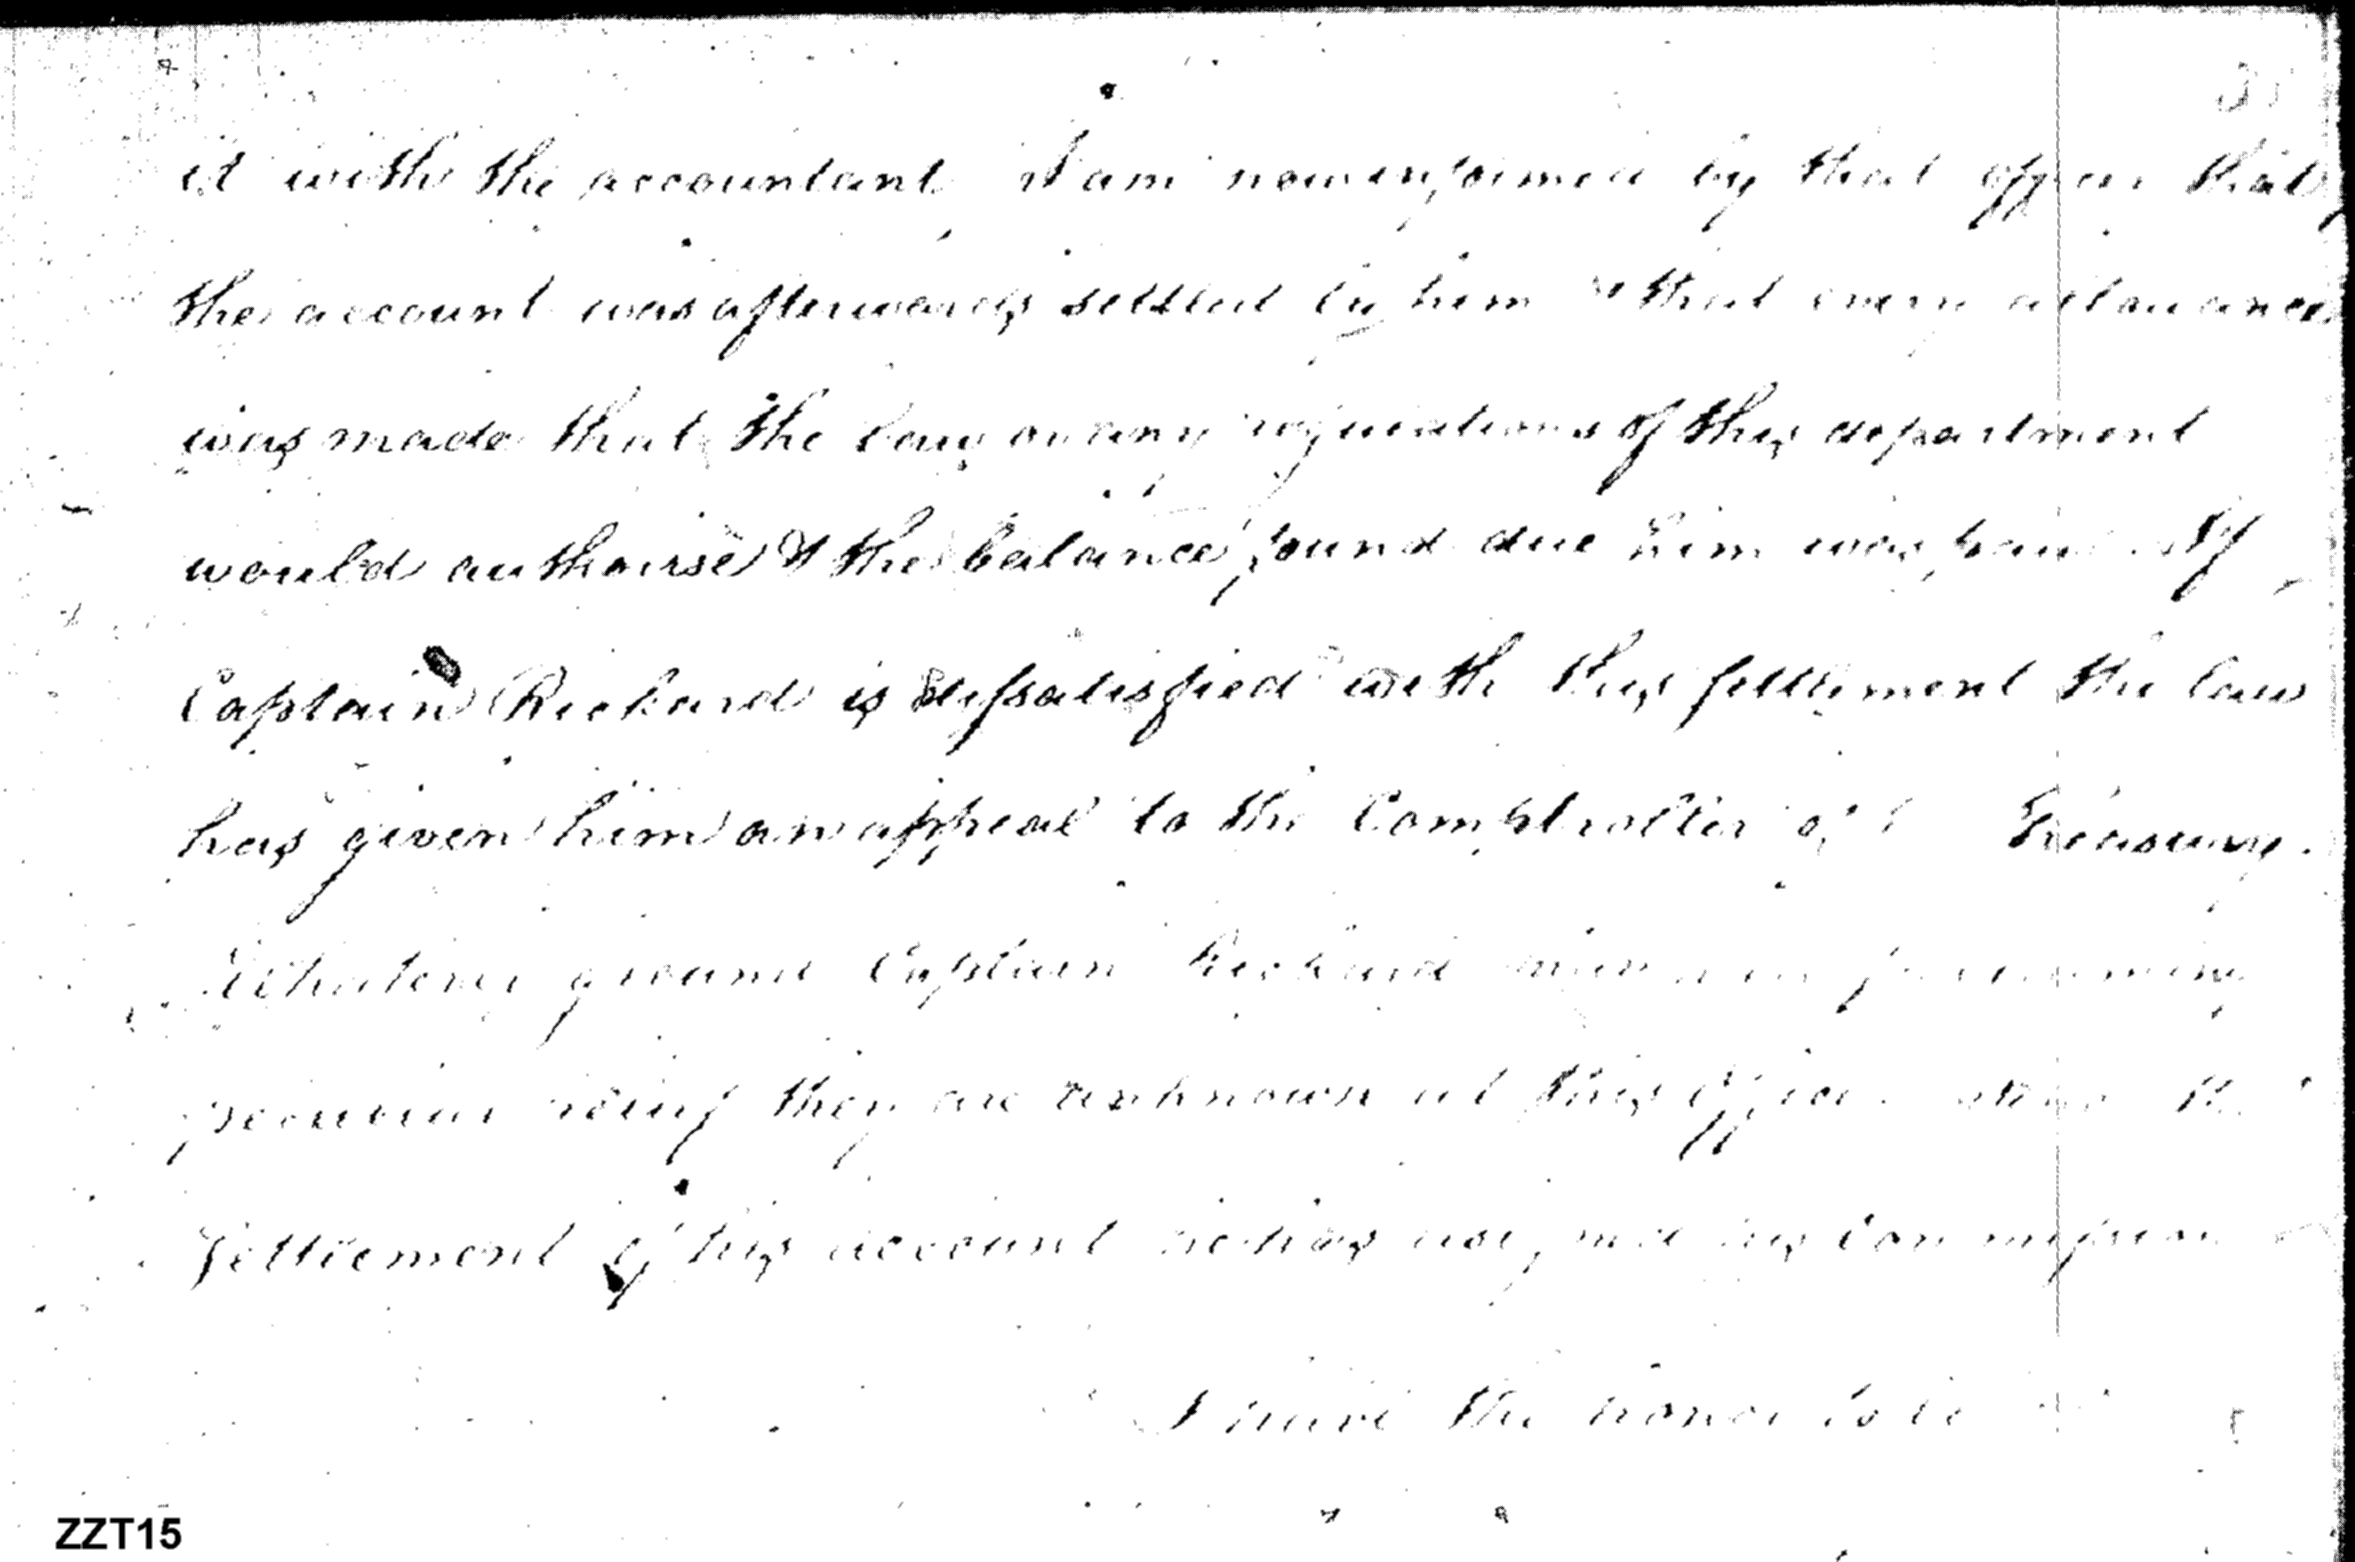 it with the accountant I am now informed by that officer that
the account was afterwards settled by him & that every allowance
was made that the law or any regulations of this department
would authorise & the balance found due him was paid. If
Captain Rickard is dissatisfied with this settlement the law
has given him an appeal to the Comptroller of Treasury.
Whatever ground Captain Rickard
they are unknown at this office.
settlement of his account he has
I have the honor to be
ZZT15